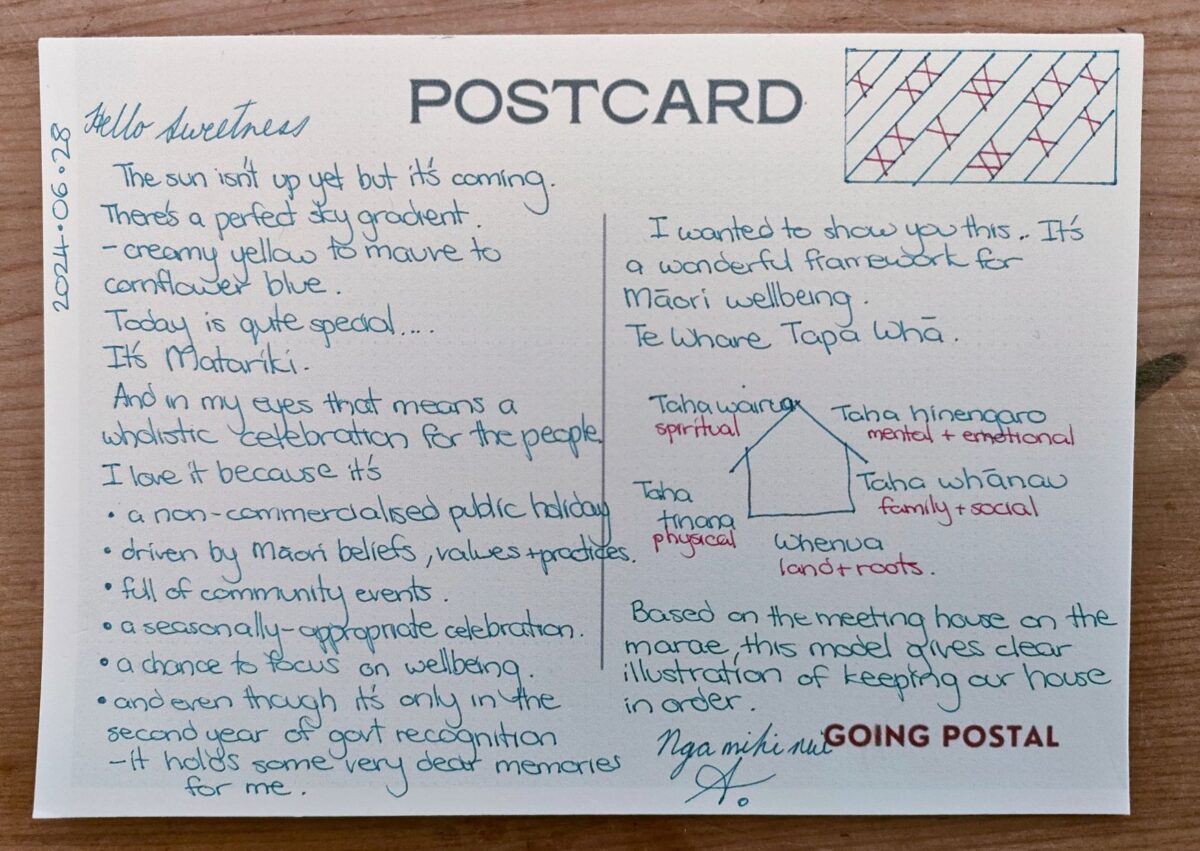 POSTCARD
2024.06.28
Hello Sweetness
The sun isn't up yet but it's coming.
There's a perfect sky gradient.
- creamy yellow to mauve to
cornflower blue.
Today is qute special....
It's Matariki.
And in my eyes that means a
wholistic celebration for the people
I love it because it's
• a non-commercialised public holiday
• driven by Māori beliefs, values + practices.
• full of community events.
• a seasonally-appropriate celebration.
• a chance to focus on wellbeing.
• and even though it's only in the
second year of govt recognition
- it holds some very dear memories
for me.
I wanted to show you this.. It's
a wonderful framework for
Māori wellbeing.
Te Whare Tapā Whā.
Taha wairua
spiritual
Taha hinengaro
mental + emotional
Taha
tinana
physical
Taha whānau
family + social
Whenua
land + roots.
Based on the meeting house on the
marae, this model gives clear
illustration of keeping our house
in order.
Nga mihi nui
A.
GOING POSTAL